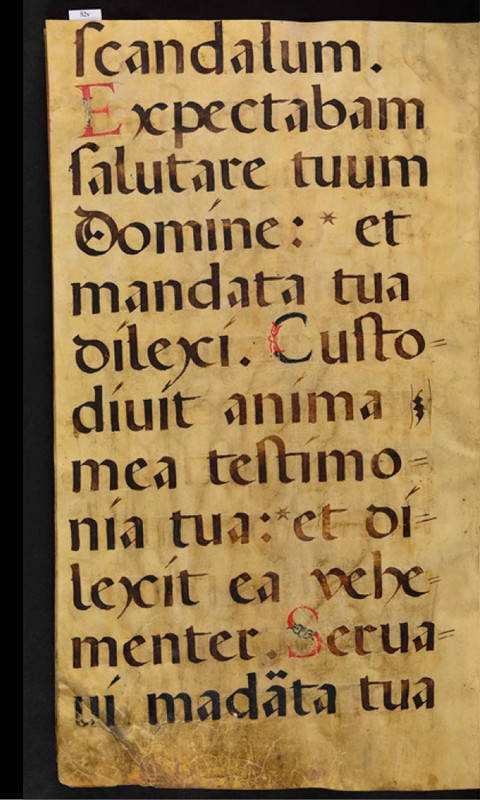 52v
ſcandalum.
Expectabam
ſalutare tuum
Domíne: * et
mandata tua
dílexí. Cuſto=
díuít aníma
mea teſtímo=
nía tua:* et dí=
lexít ea vehe=
menter. Serua=
uí madäta tua